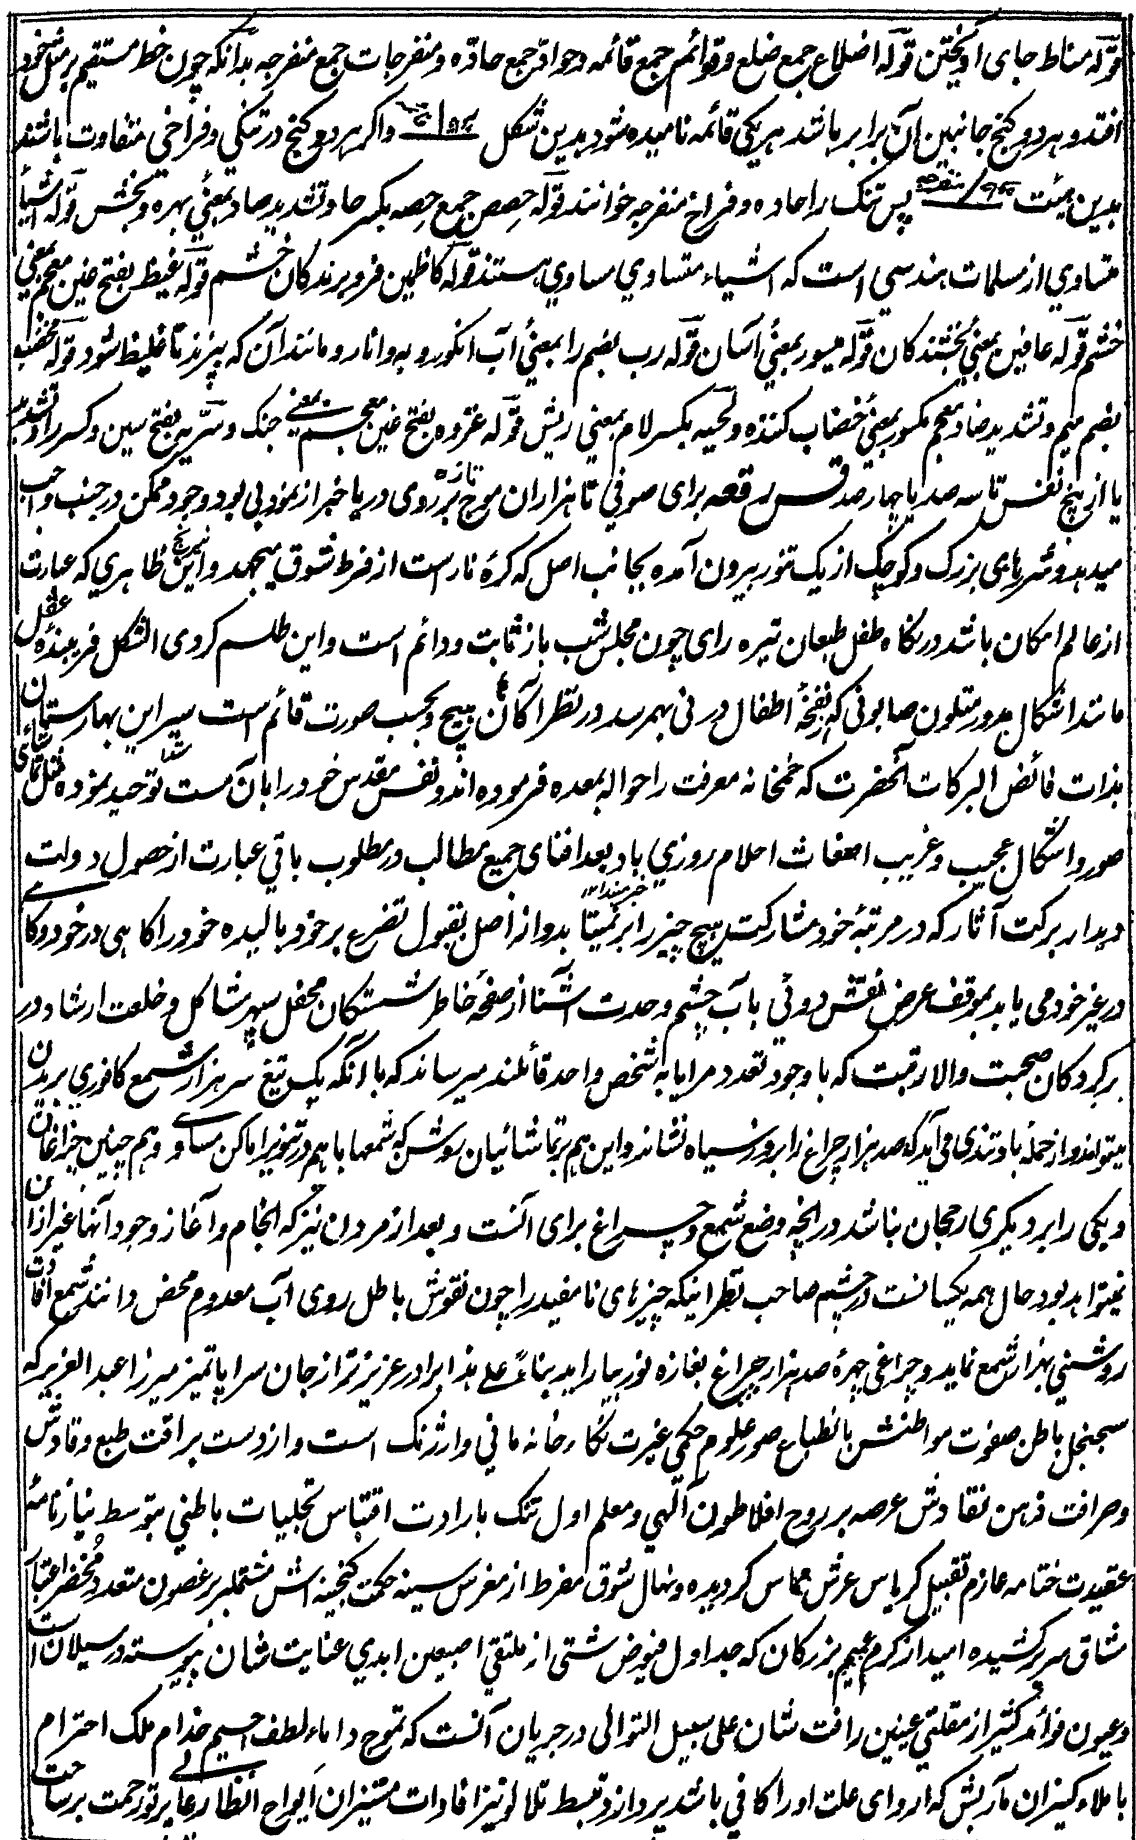 قوله مناط جای آویختن قوله اضلاع جمع ضلع وقوائم جمع قائمه وحواد جمع حاده ومنفرجات جمع منفرجه بدانکه چون خط مستقیم بر مثل خود
افتد و هر دو کنج جانبین آن برابر باشند هریکی قائمه نامیده شود بدین شکل واگر هر دو کنج در تنگی و فراخی متفاوت باشند
بدین هیئت پس تنگ را حاده و فراخ منفرجه خوانند قوله حصص جمع حصه بکسر حا وتشدید صاد بمعنی بهره و بخش قوله اشیاء
متساوي از مسلمات هندسی است که اشیاء متساوي مساوي هستند قوله کاظمین فرو برندکان خشم قوله غیظ بفتح غین معجم بمعني
خشم قوله عافین بمعني بخشندکان قوله میسور بمعنی آسان قوله رب بضم را بمعنی آب انکور وبه وانار ومانند آن که بپزند تا غلیظ شود قوله مخضب
بضم میم وتشدید ضاد معجم مکسور بمعنی خضاب کننده ولحیه بکسر لام بمعني ریش قوله غزوه بفتح غین معجم بمعني جنک وسریه بفتح سین وکسر را وتشدید
یا از پنج نفس تا سه صد یا چهار صد قس رقعه برای صوفي تا هزاران موج تازه بر روی دریا خبر از نمود بی بود وجود ممکن در جنب واجب
میدهد وشررهای بزرک وکوچک از یک تنور بیرون آمده بجانب اصل که کرۀ نار است از فرط شوق میجهد واین نیرنج ظاهري که عبارت
از عالم امکان باشد در نکاه طفل طبعان تیره رای چون مجلس شب باز ثابت ودائم است واین طلسم کردی الشکل فریبنده عقل
مانند اشکال مدور متلون صابونی که بنفخۀ اطفال در نی بهم رسد در نظر آکان هیچ وبحسب صورت قائم است سیر این بهارستان
بذات فائض البرکات آنحضرت که خمخانه معرفت را حواله بمعده فرموده اند ونفس مقدس خود را بآن مست توحید نموده مثل تماشای
صور واشکال عجیب وغریب اضغاث احلام روزي باد بعد افنای جمیع مطالب در مطلوب باقي عبارت از حصول دولت
دیدار برکت آثار که در مرتبۀ خود مشارکت هیچ چیز را برنمیتابد واز اصل بقبول تضرع بر خود بالیده خود را کاهی در خود وکاهی
در غیر خود می یابد بموقف عرض نقش دوئی بآب چشم وحدت آشنا از صفحۀ خاطر شستکان محفل سپهر مشاکل وخلعت ارشاد در
بر کردکان صحبت والا رتبت که با وجود تعدد مرایا به شخص واحد قائلند میرساند که با آنکه یک تیغ سر هزار شمع کافوري بریدن
میتواند واز حملۀ باد تندی می آید که صد هزار چراغ را بروز سیاه نشاند واین هم بر تماشائیان روشن که شمعها با هم در تنویر اماکن مساوي وهم چنین چراغان
ویکی را بر دیکری رجحان نباشد در انچه وضع شمع وچراغ برای آنست وبعد از مردن نیز که انجام وآغاز وجود آنها غیر ازان
نمیتواند بود حال همه یکسانست در چشم صاحب نظر اینکه چیزهای نامفید را چون نقوش باطل روی آب معدوم محض دانند شمع افادت
روشنی بهزار شمع نماید وچراغی چهرۀ صد هزار چراغ بغازه نور بیاراید بناءً علی هذا برادر عزیزتر از جان سراپا تمیز میرزا عبد العزیز که
سجنجل باطن صفوت مواطنش بانطباع صور علوم حکمي غیرت نکارخانه ماني وارژنک است واز دست براقت طبع وقادش
وصرافت ذهن نقادش عرصه بر روح افلاطون آلهي ومعلم اول تنک بارادت اقتباس تجلیات باطني بتوسط نیازنامه
عقیدت ختامه عازم تقبیل کریاس عرش مماس کردیده ونهال شوق مفرط از مغرس سینه حکمت کنجینه اش مشتمله بر غصون متعدده
مشاق سر بر کشیده امید از کرم عمیم بزرکان که جداول فیوض شتی از ملتقي اصبعین ابدي عنایت شان پیوسته در سیلان است
وعیون فوائد کثیر از مقلتي عینین رافت شان علی سبیل التوالی در جریان آنست که تموج داماء لطف جسیم خدام ملک احترام
باملاء کیزان مآربش که اروای علت او را کافي باشد پردازد وتبسط تلالؤ نیز افادات مستنیران الواح انظار عابر تو رحمت بر ساحت